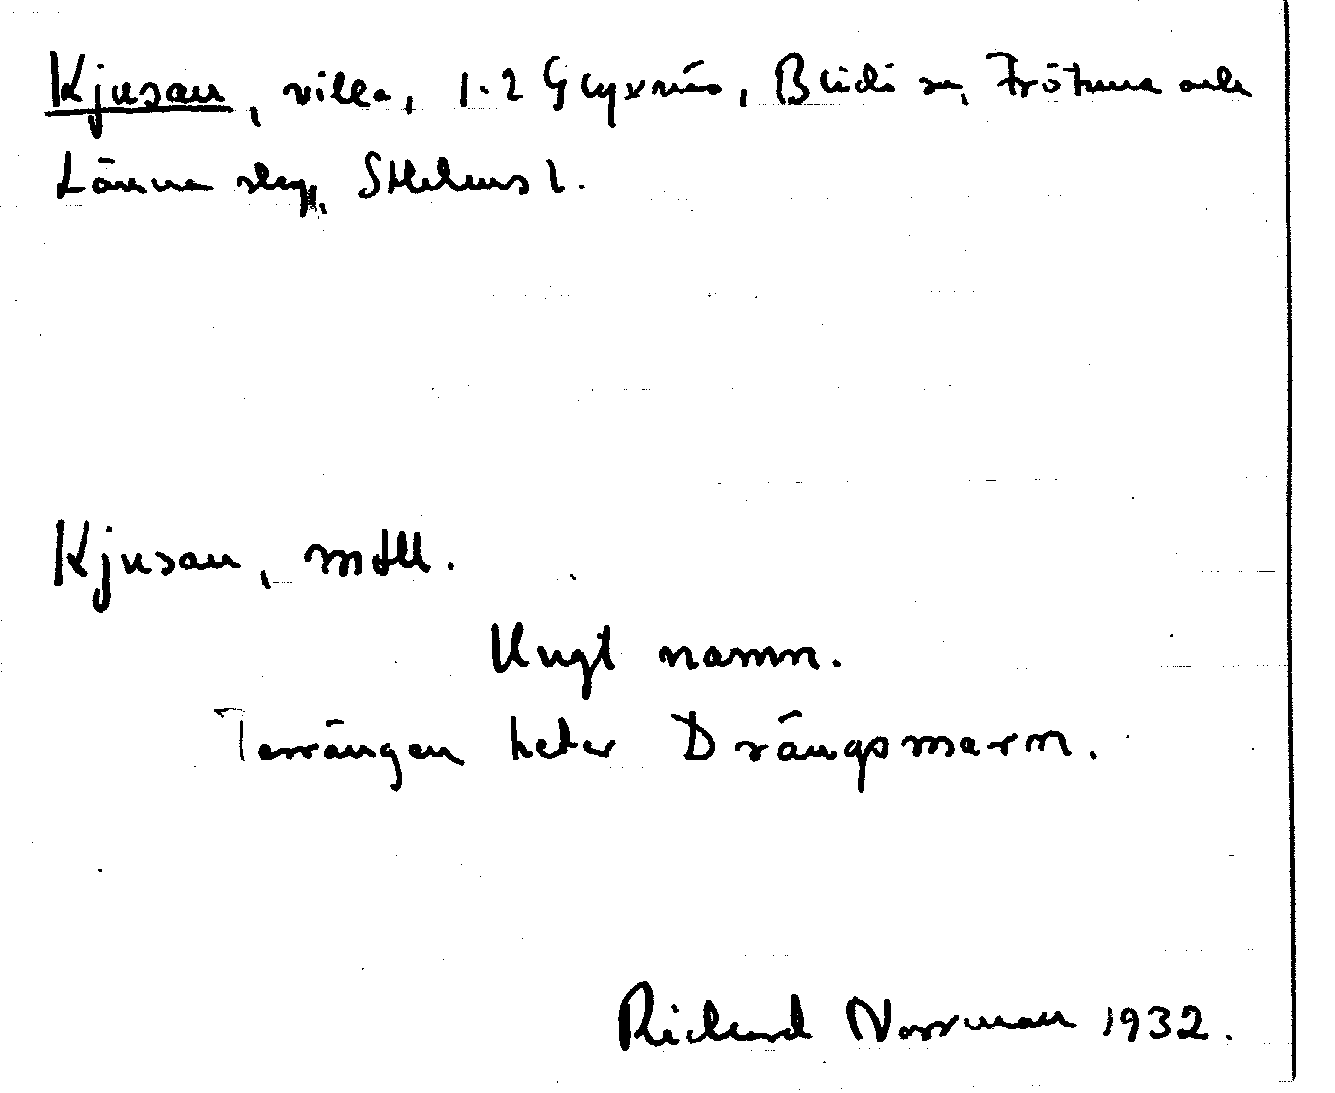 Kjusan, villa, 1-2 Glyxnäs, Blidö sn, Frötuna och
Länna skg, Sthlms l.
Kjusan, mtll.
Ungt namn.
Terrängen heter Drängsmarn.
Richard Norrman 1932.